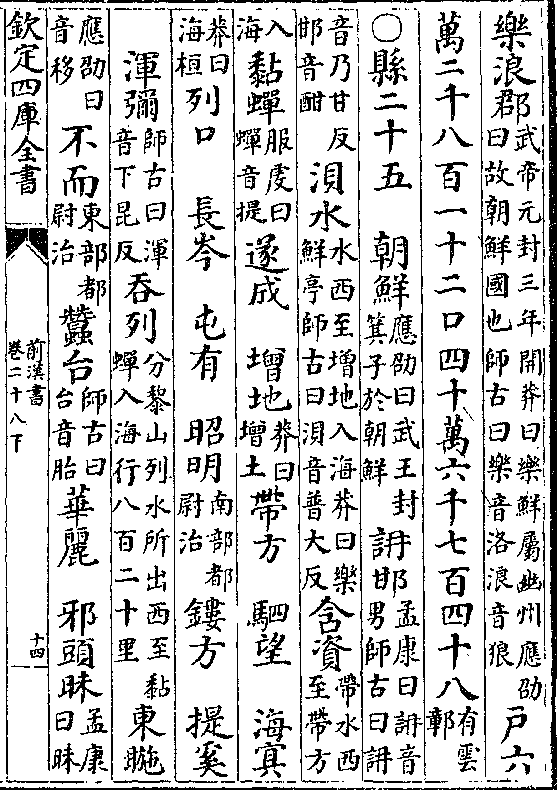 樂浪郡武帝元封三年開莽曰樂鮮屬幽州應劭曰故朝鮮國也師古曰樂音洛浪音狼戶六
萬二千八百一十二口四十萬六千七百四十八有雲鄣
○縣二十五 朝鮮應劭曰武王封箕子於朝鮮 䛁邯孟康曰䛁音男師古曰䛁
音乃甘反邯音酣 浿水水西至增地入海莽曰樂鮮亭師古曰浿音普大反 含資帶水西至帶方
入海 黏蟬服虔曰蟬音提 遂成 增地莽曰增土 帶方 駟望 海冥
莽曰海桓 列口 長岑 屯有 昭明南部都尉治 鏤方 提奚
渾彌師古曰渾音下昆反 吞列分黎山列水所出西至黏蟬入海行八百二十里 東暆
應劭曰音移 不而東部都尉治 蠶台師古曰台音胎 華麗 邪頭昧孟康曰昧
欽定四庫全書
前漢書
卷二十八下
十四